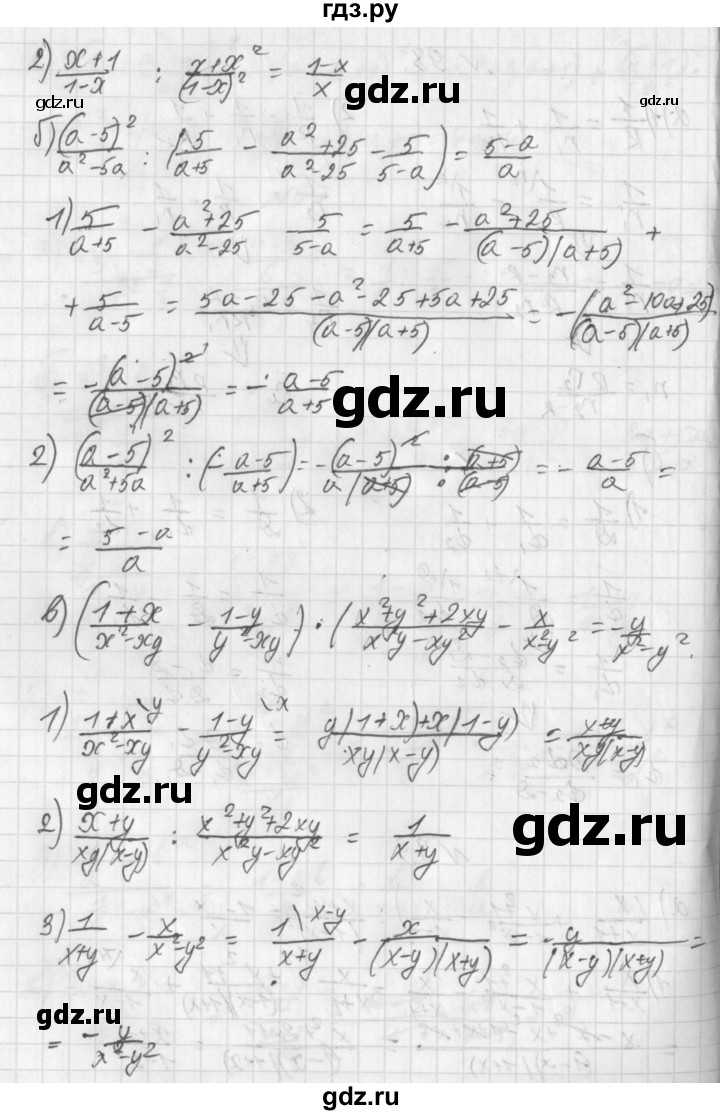 гдз.ру
2) (x+1)/(1-x) : (x+x²)/(1-x)² = (1-x)/x
gdz.ru
б) (a-5)²/(a²-5a) : (5/(a+5) - (a²+25)/(a²-25) - 5/(5-a)) = (5-a)/a
1) 5/(a+5) - (a²+25)/(a²-25) 5/(5-a) = 5/(a+5) - (a²+25)/((a-5)(a+5)) +
+ 5/(a-5) = (5a-25-a²-25+5a+25)/((a-5)(a+5)) = -(a²-10a+25)/((a-5)(a+5))
= -(a-5)²/((a-5)(a+5)) = - (a-5)/(a+5)
gdz.ru
2) (a-5)²/(a²+5a) : (- (a-5)/(a+5)) = - (a-5)²/(a(a+5)) : (a+5)/(a-5) = - (a-5)/a =
= (5-a)/a
в) ((1+x)/(x²-xy) - (1-y)/(y²-xy)) : (x²+y²+2xy)/(x²y-xy²) - x/(x²-y²) = -y/(x²-y²).
gdz.ru
1) (1+x)/(x²-xy) \y - (1-y)/(y²-xy) \x = (y(1+x)+x(1-y))/(xy(x-y)) = (x+y)/(xy(x-y))
gdz.ru
2) (x+y)/(xy(x-y)) : (x²+y²+2xy)/(x²y-xy²) = 1/(x+y)
gdz.ru
3) 1/(x+y) - x/(x²-y²) = 1\x-y/(x+y) - x/((x-y)(x+y)) = -y/((x-y)(x+y)) =
= -y/(x²-y²)
gdz.ru
gdz.ru
gdz.ru